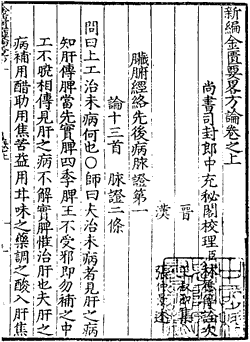 新編金匱要畧方論卷之上
尚書司封郎中充秘閣校理臣林億詮次
晉 王叔和集
漢 張仲景述
臟腑經絡先後病脉證第一
論十三首 脉證二條
問曰上工治未病何也○師曰夫治未病者見肝之病
知肝傳脾當先實脾四季脾王不受邪即勿補之中
工不曉相傳見肝之病不解實脾惟治肝也夫肝之
病補用酸助用焦苦益用甘味之藥調之酸入肝焦